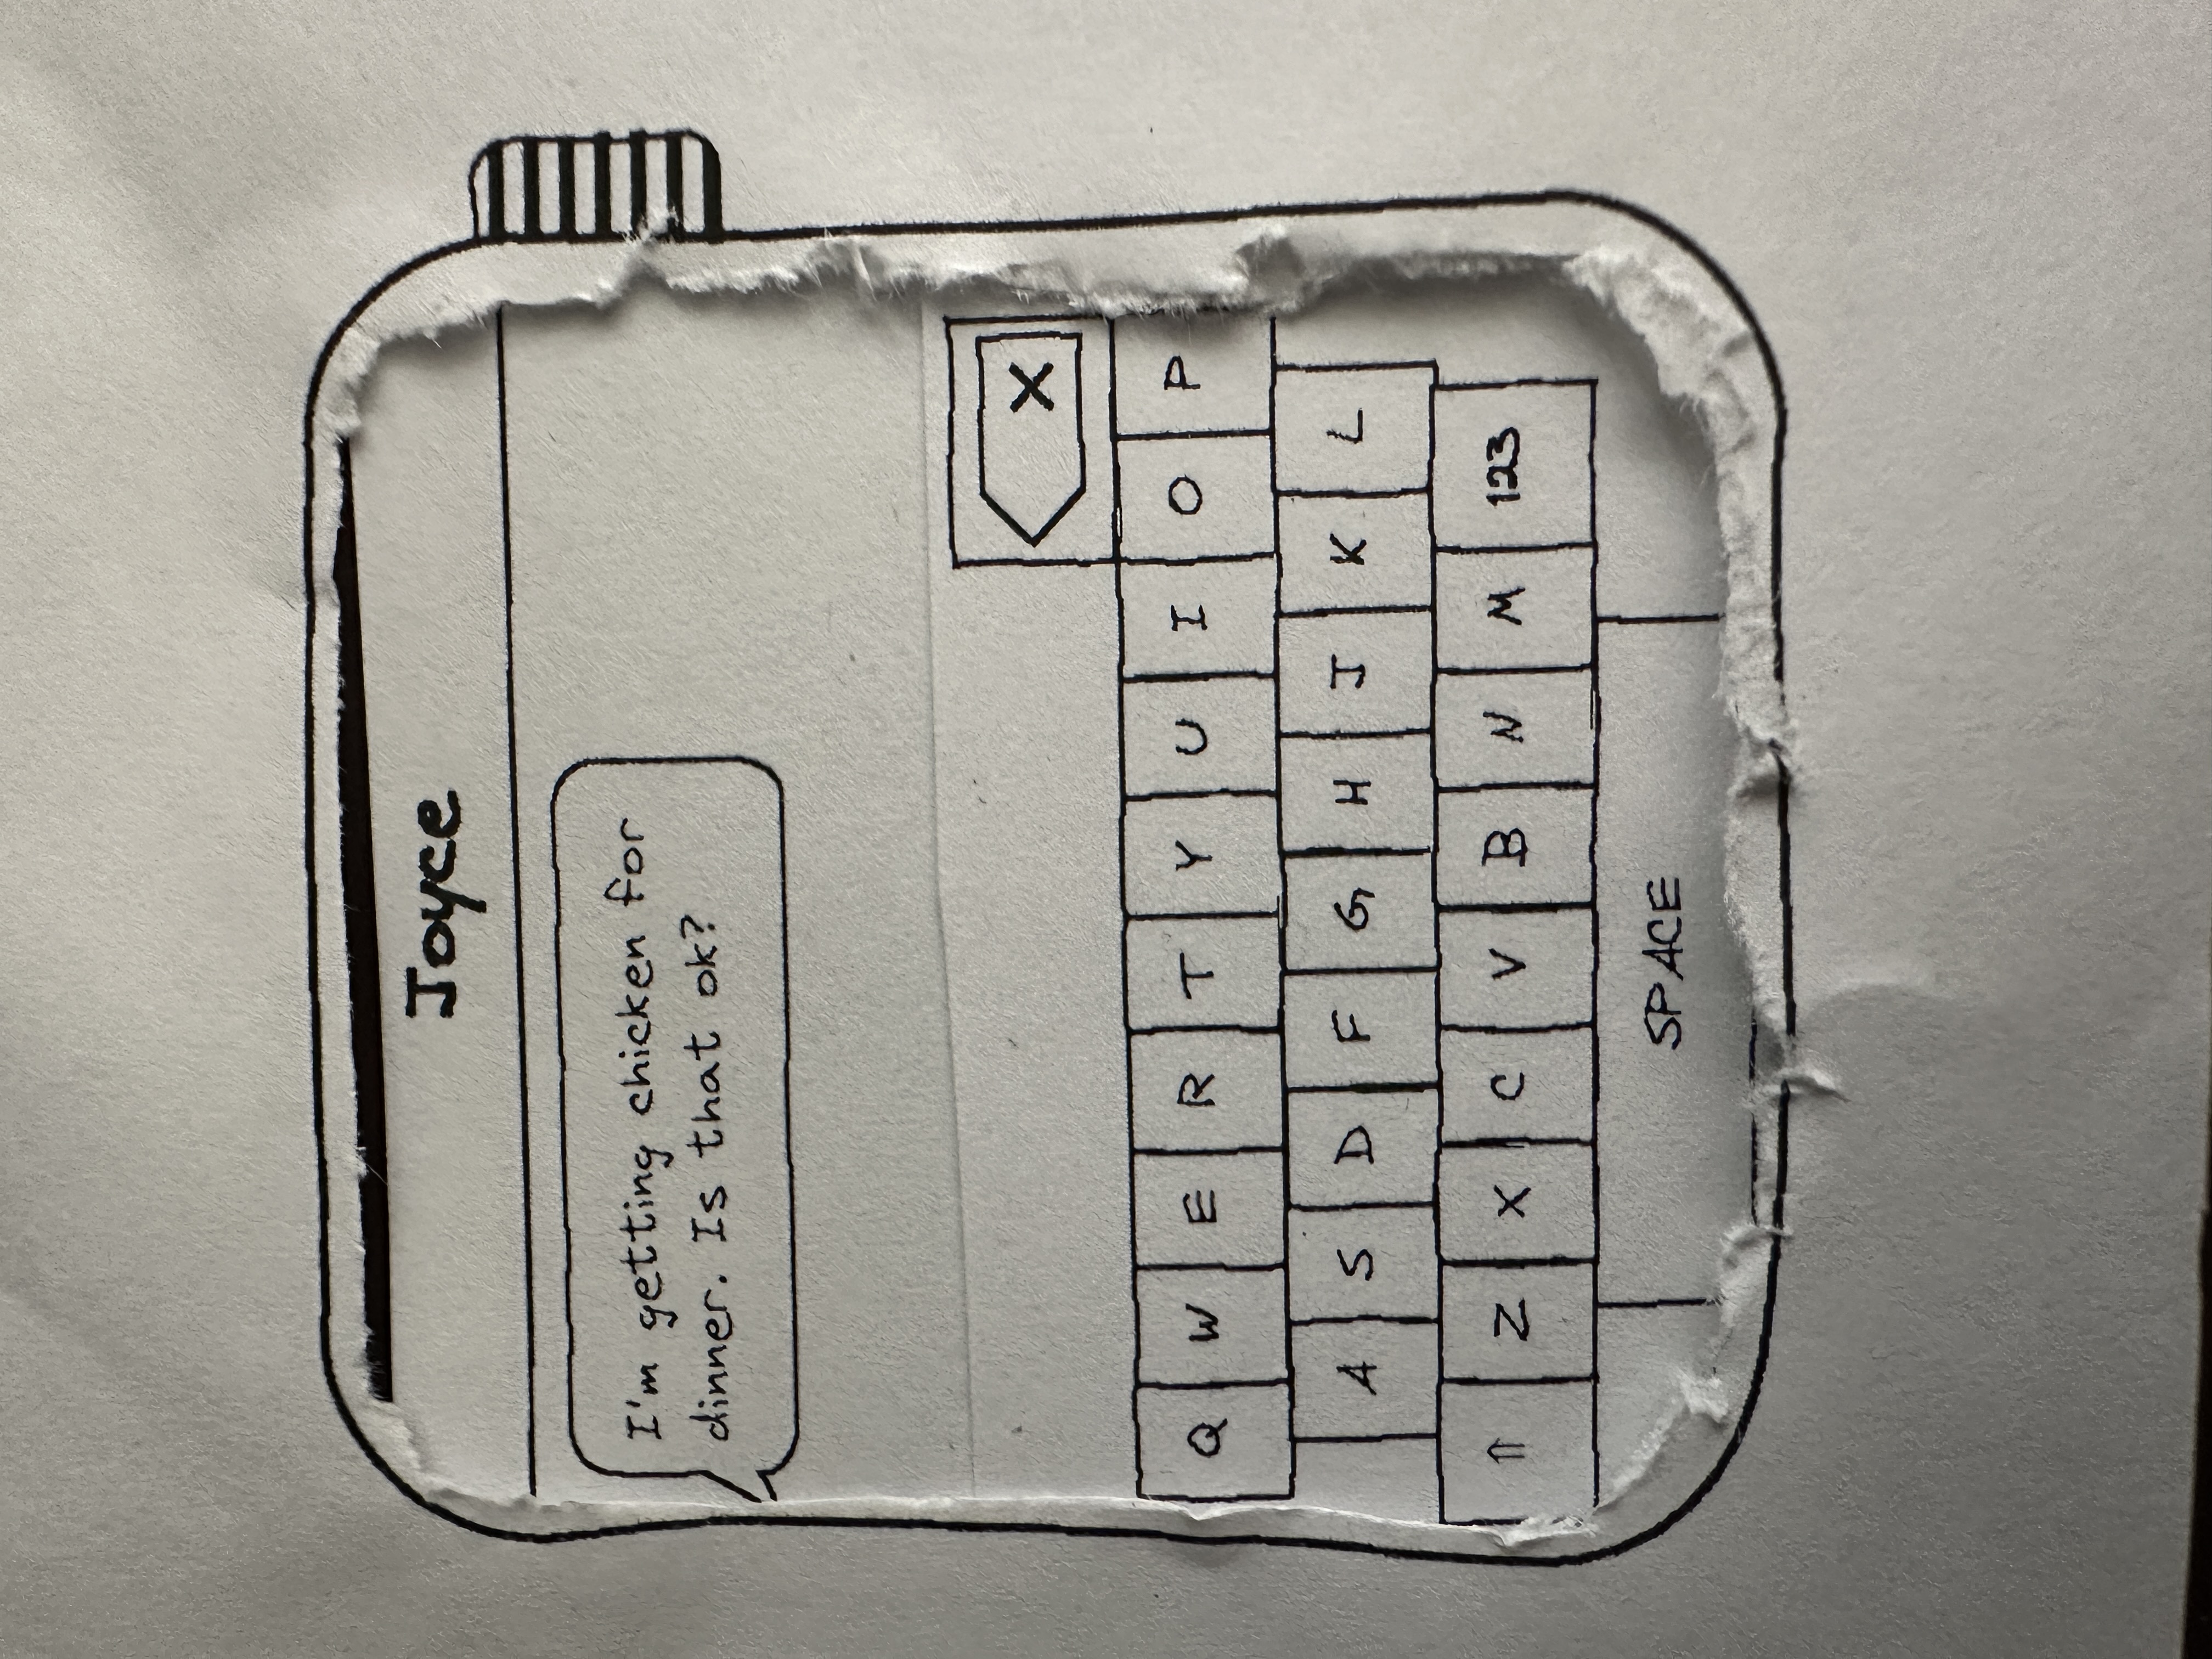 Joyce
I'm getting chicken for
dinner. Is that ok?
X
Q W E R T Y U I O P
A S D F G H J K L
⇑ Z X C V B N M 123
SPACE